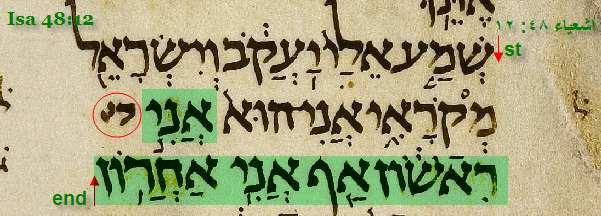 Isa 48:12
اشعياء ٤٨: ١٢
שְׁמַע אֵלַי יַעֲקֹב וְיִשְׂרָאֵל
st
מְקֹרָאִי אֲנִי הוּא אֲנִי
רִאשׁוֹן אַף אֲנִי אַחֲרוֹן
end